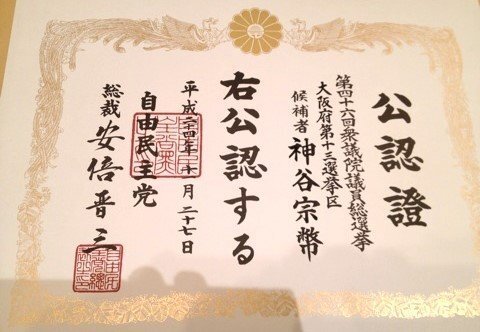 公認證
第四十六回衆議院議員総選挙
大阪府第十三選挙区
候補者 神谷宗幣
右公認する
平成二十四年十一月二十七日
自由民主党
総裁 安倍晋三